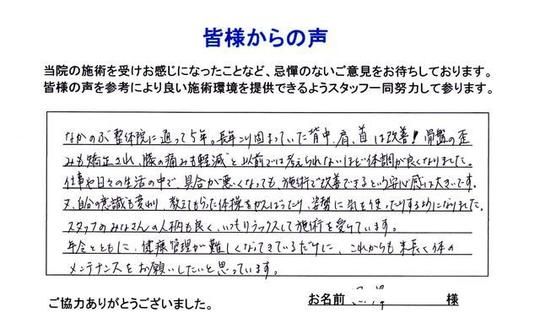 皆様からの声
当院の施術を受けお感じになったことなど、忌憚のないご意見をお待ちしております。
皆様の声を参考により良い施術環境を提供できるようスタッフ一同努力して参ります。
なかのぶ整体院に通って5年。長年こり固まっていた背中、肩、首は改善！骨盤の歪
みも矯正され、膝の痛みも軽減と以前では考えられないほど体調が良くなりました。
仕事や日々の生活の中で、具合が悪くなっても、施術で改善できるという安心感は大きいです。
又、自分の意識も変わり、教えてもらった体操をがんばったり、姿勢に気を使ったりするようになりました。
スタッフのみなさんの人柄も良く、いつもリラックスして施術を受けています。
年令とともに、健康管理が難しくなってきているだけに、これからも末長く体の
メンテナンスをお願いしたいと思っています。
ご協力ありがとうございました。
お名前 様